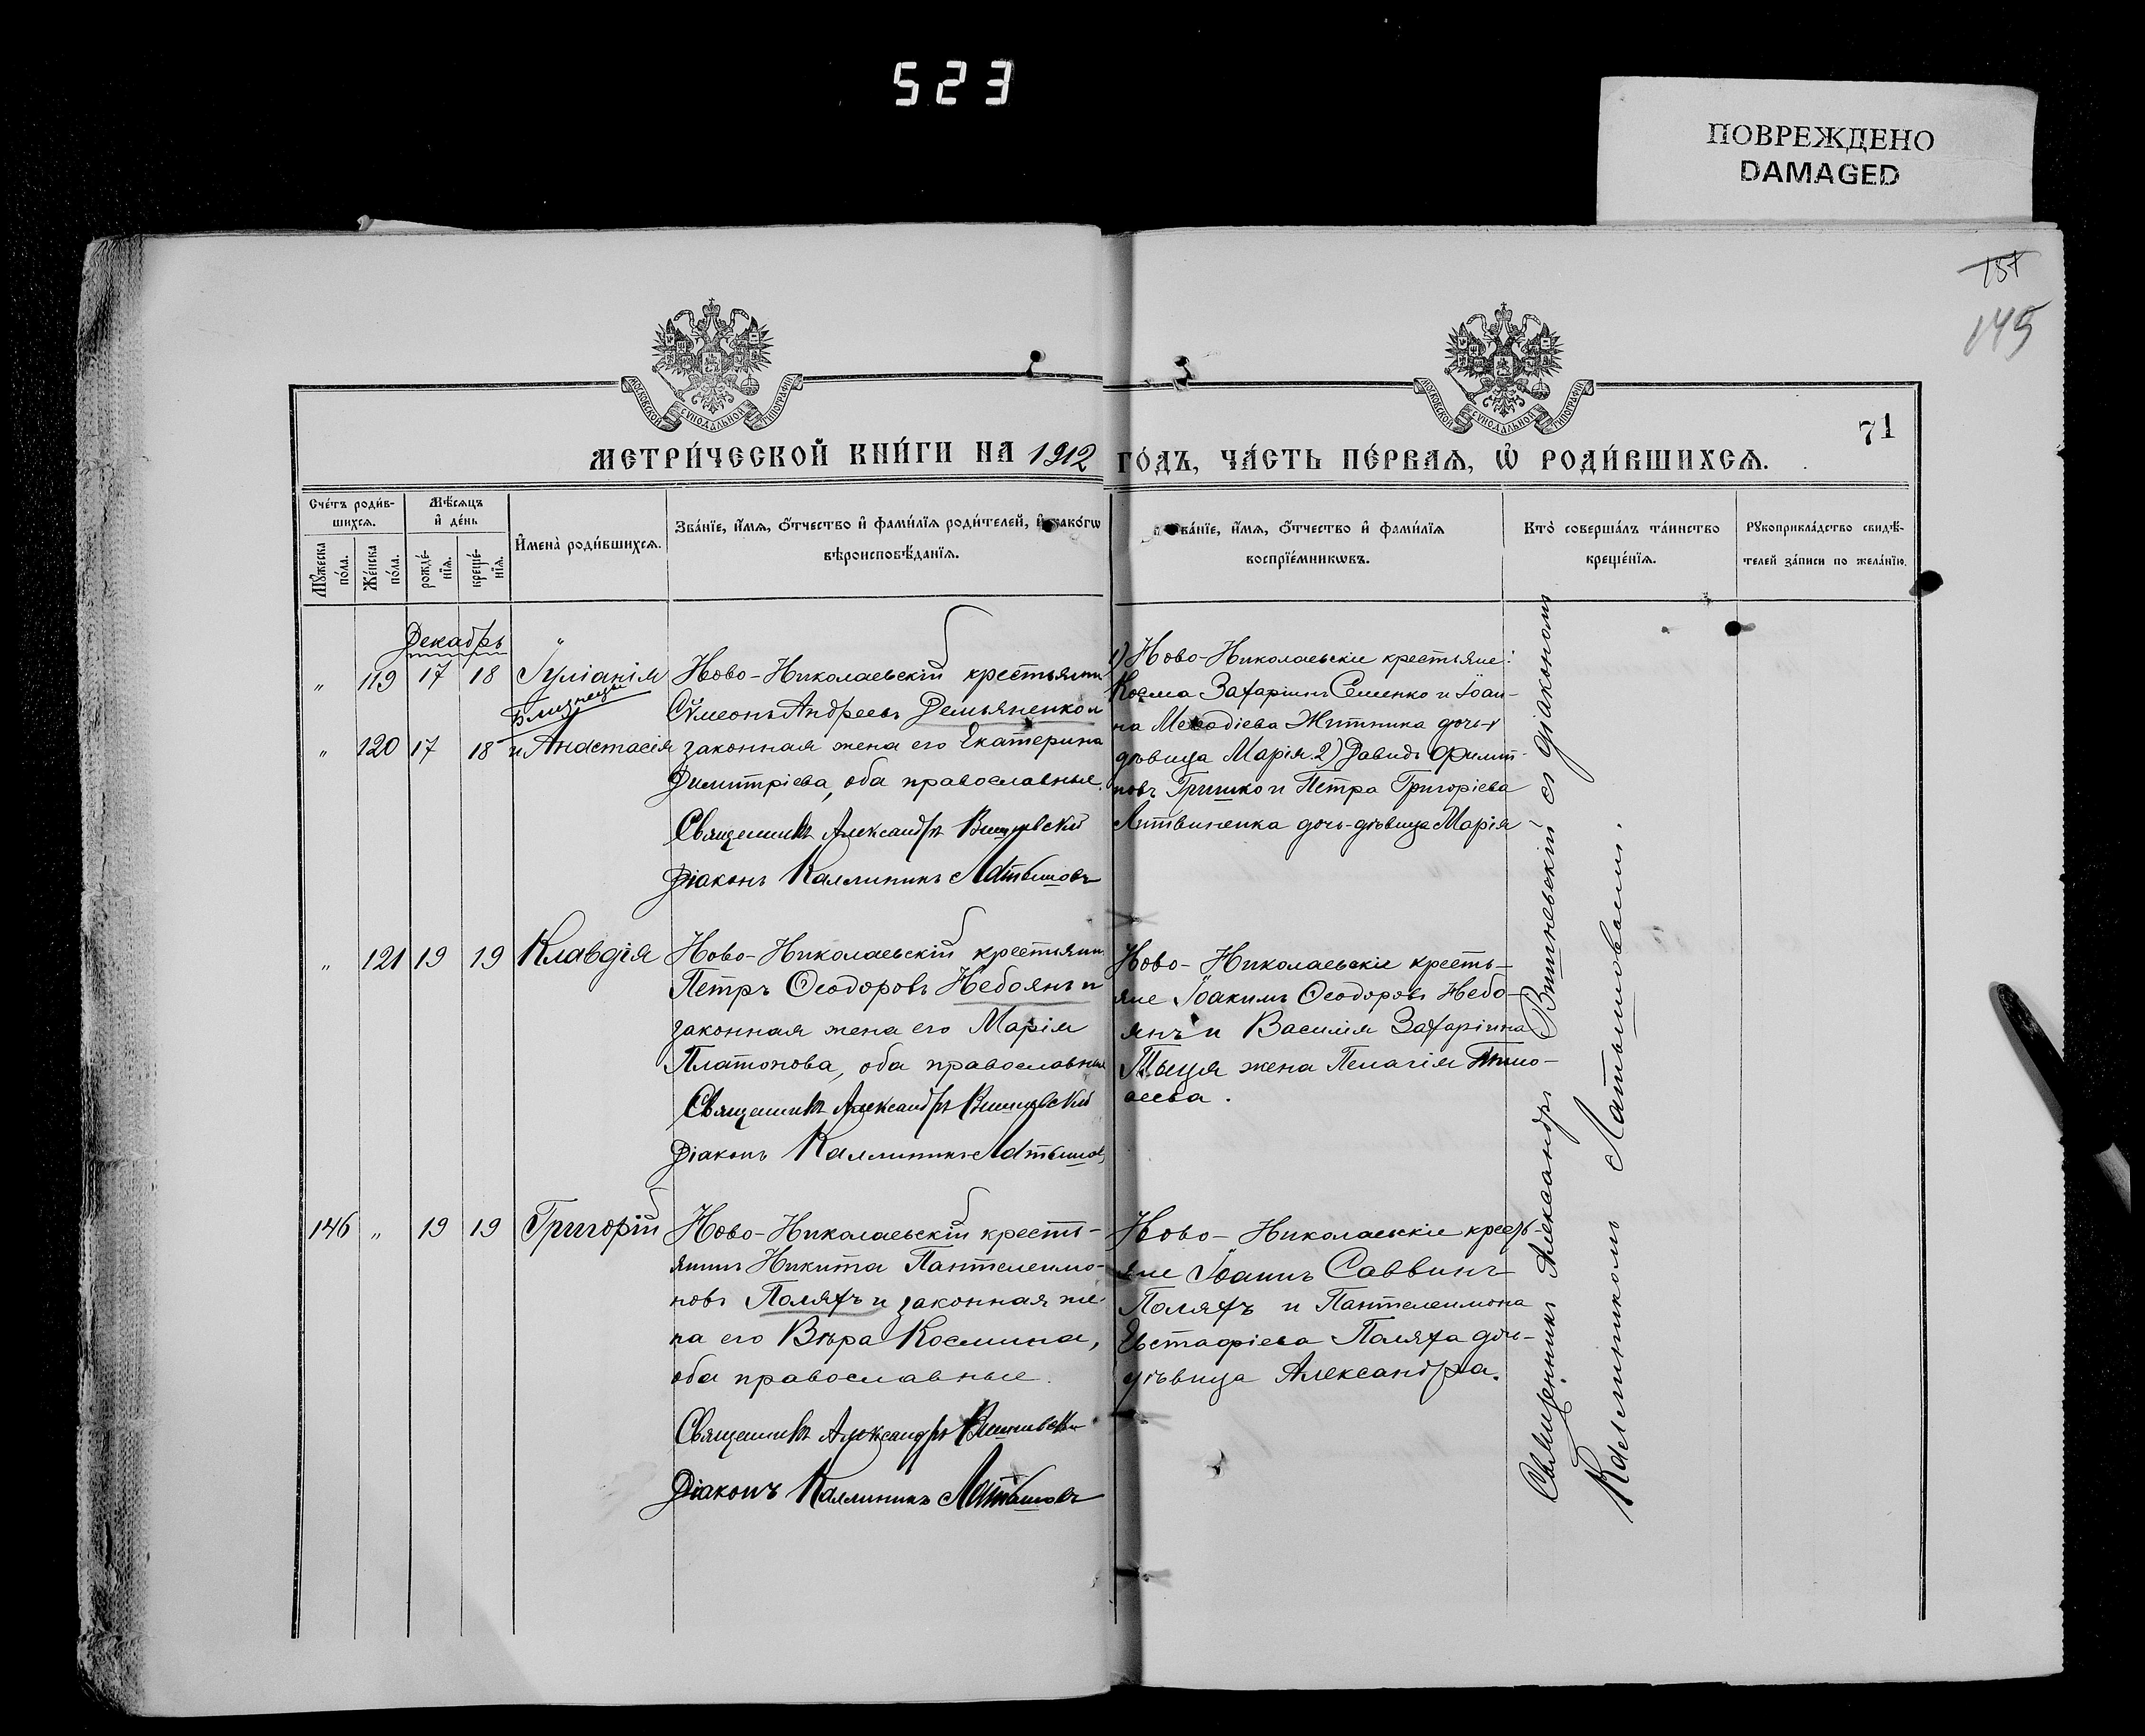 523
ПОВРЕЖДЕНО
DAMAGED
151
145
МОСКОВСКОЙ СѴНОДАЛЬНОЙ ТИПОГРАФІИ
МОСКОВСКОЙ СѴНОДАЛЬНОЙ ТИПОГРАФІИ
71
МЕТРИ́ЧЕСКОЙ КНИ́ГИ НА 1912 ГО́ДЪ, ЧА́СТЬ ПЕ́РВАѦ, Ѡ҆ РОДИ́ВШИХСѦ.
Сче́тъ роди́в-
шихсѧ.
Мꙋ́жеска по́ла.
Же́нска по́ла.
Мѣ́сѧцъ
и҆ де́нь
рожде́-
нїѧ.
креще́-
нїѧ.
И҆мена̀ роди́вшихсѧ.
Зва́нїе, и҆́мѧ, ѻ҆́тчество и҆ фами́лїѧ роди́телей, и҆ како́гѡ
вѣроисповѣ́данїѧ.
Зва́нїе, и҆́мѧ, ѻ҆́тчество и҆ фами́лїѧ
воспрїе́мникѡвъ.
Кто̀ соверша́лъ та́инство
креще́нїѧ.
Рꙋкоприкла́дство свидѣ́-
телей за́писи по жела́нїю.
Декабрь
„ 119 17 18 Іуліанія
Близнецы
„ 120 17 18 и Анастасія
Ново-Николаевскій крестьянин
Сѵмеонъ Андреевъ Демьяненко и
законная жена его Екатерина
Димитріева, оба православные.
Священникъ Александръ Вишневскій
Діаконъ Каллиникъ Латышовъ
1) Ново-Николаевскіе крестьяне:
Косма Захаріинъ Семенко и Іоан-
на Меѳодіева Житника дочь-
дѣвица Марія. 2) Давидъ Филип-
повъ Гришко и Петра Григоріева
Литвиненка дочь-дѣвица Марія
„ 121 19 19 Клавдія
Ново-Николаевскій крестьянин
Петръ Ѳеодоровъ Небоянъ и
законная жена его Марія
Платонова, оба православные
Священникъ Александръ Вишневскій
Діаконъ Каллиникъ Латышовъ
Ново-Николаевскіе кресть-
яне Іоакимъ Ѳеодоровъ Небо-
янъ и Василія Захаріина
жена Пелагія Тимо-
ѳеева.
146 „ 19 19 Григорій
Ново-Николаевскій кресть-
янинъ Никита Пантелеимо-
новъ Поляхъ и законная же-
на его Вѣра Космина,
оба православные.
Священникъ Александръ Вишневскій
Діаконъ Каллиникъ Латышовъ
Ново-Николаевскіе кресть-
яне Іоаннъ Саввинъ
Поляхъ и Пантелеимона
Евстафіева Поляха дочь-
дѣвица Александра.
Священникъ Александръ Вишневскій съ діакономъ
Каллиникомъ Латышовымъ.